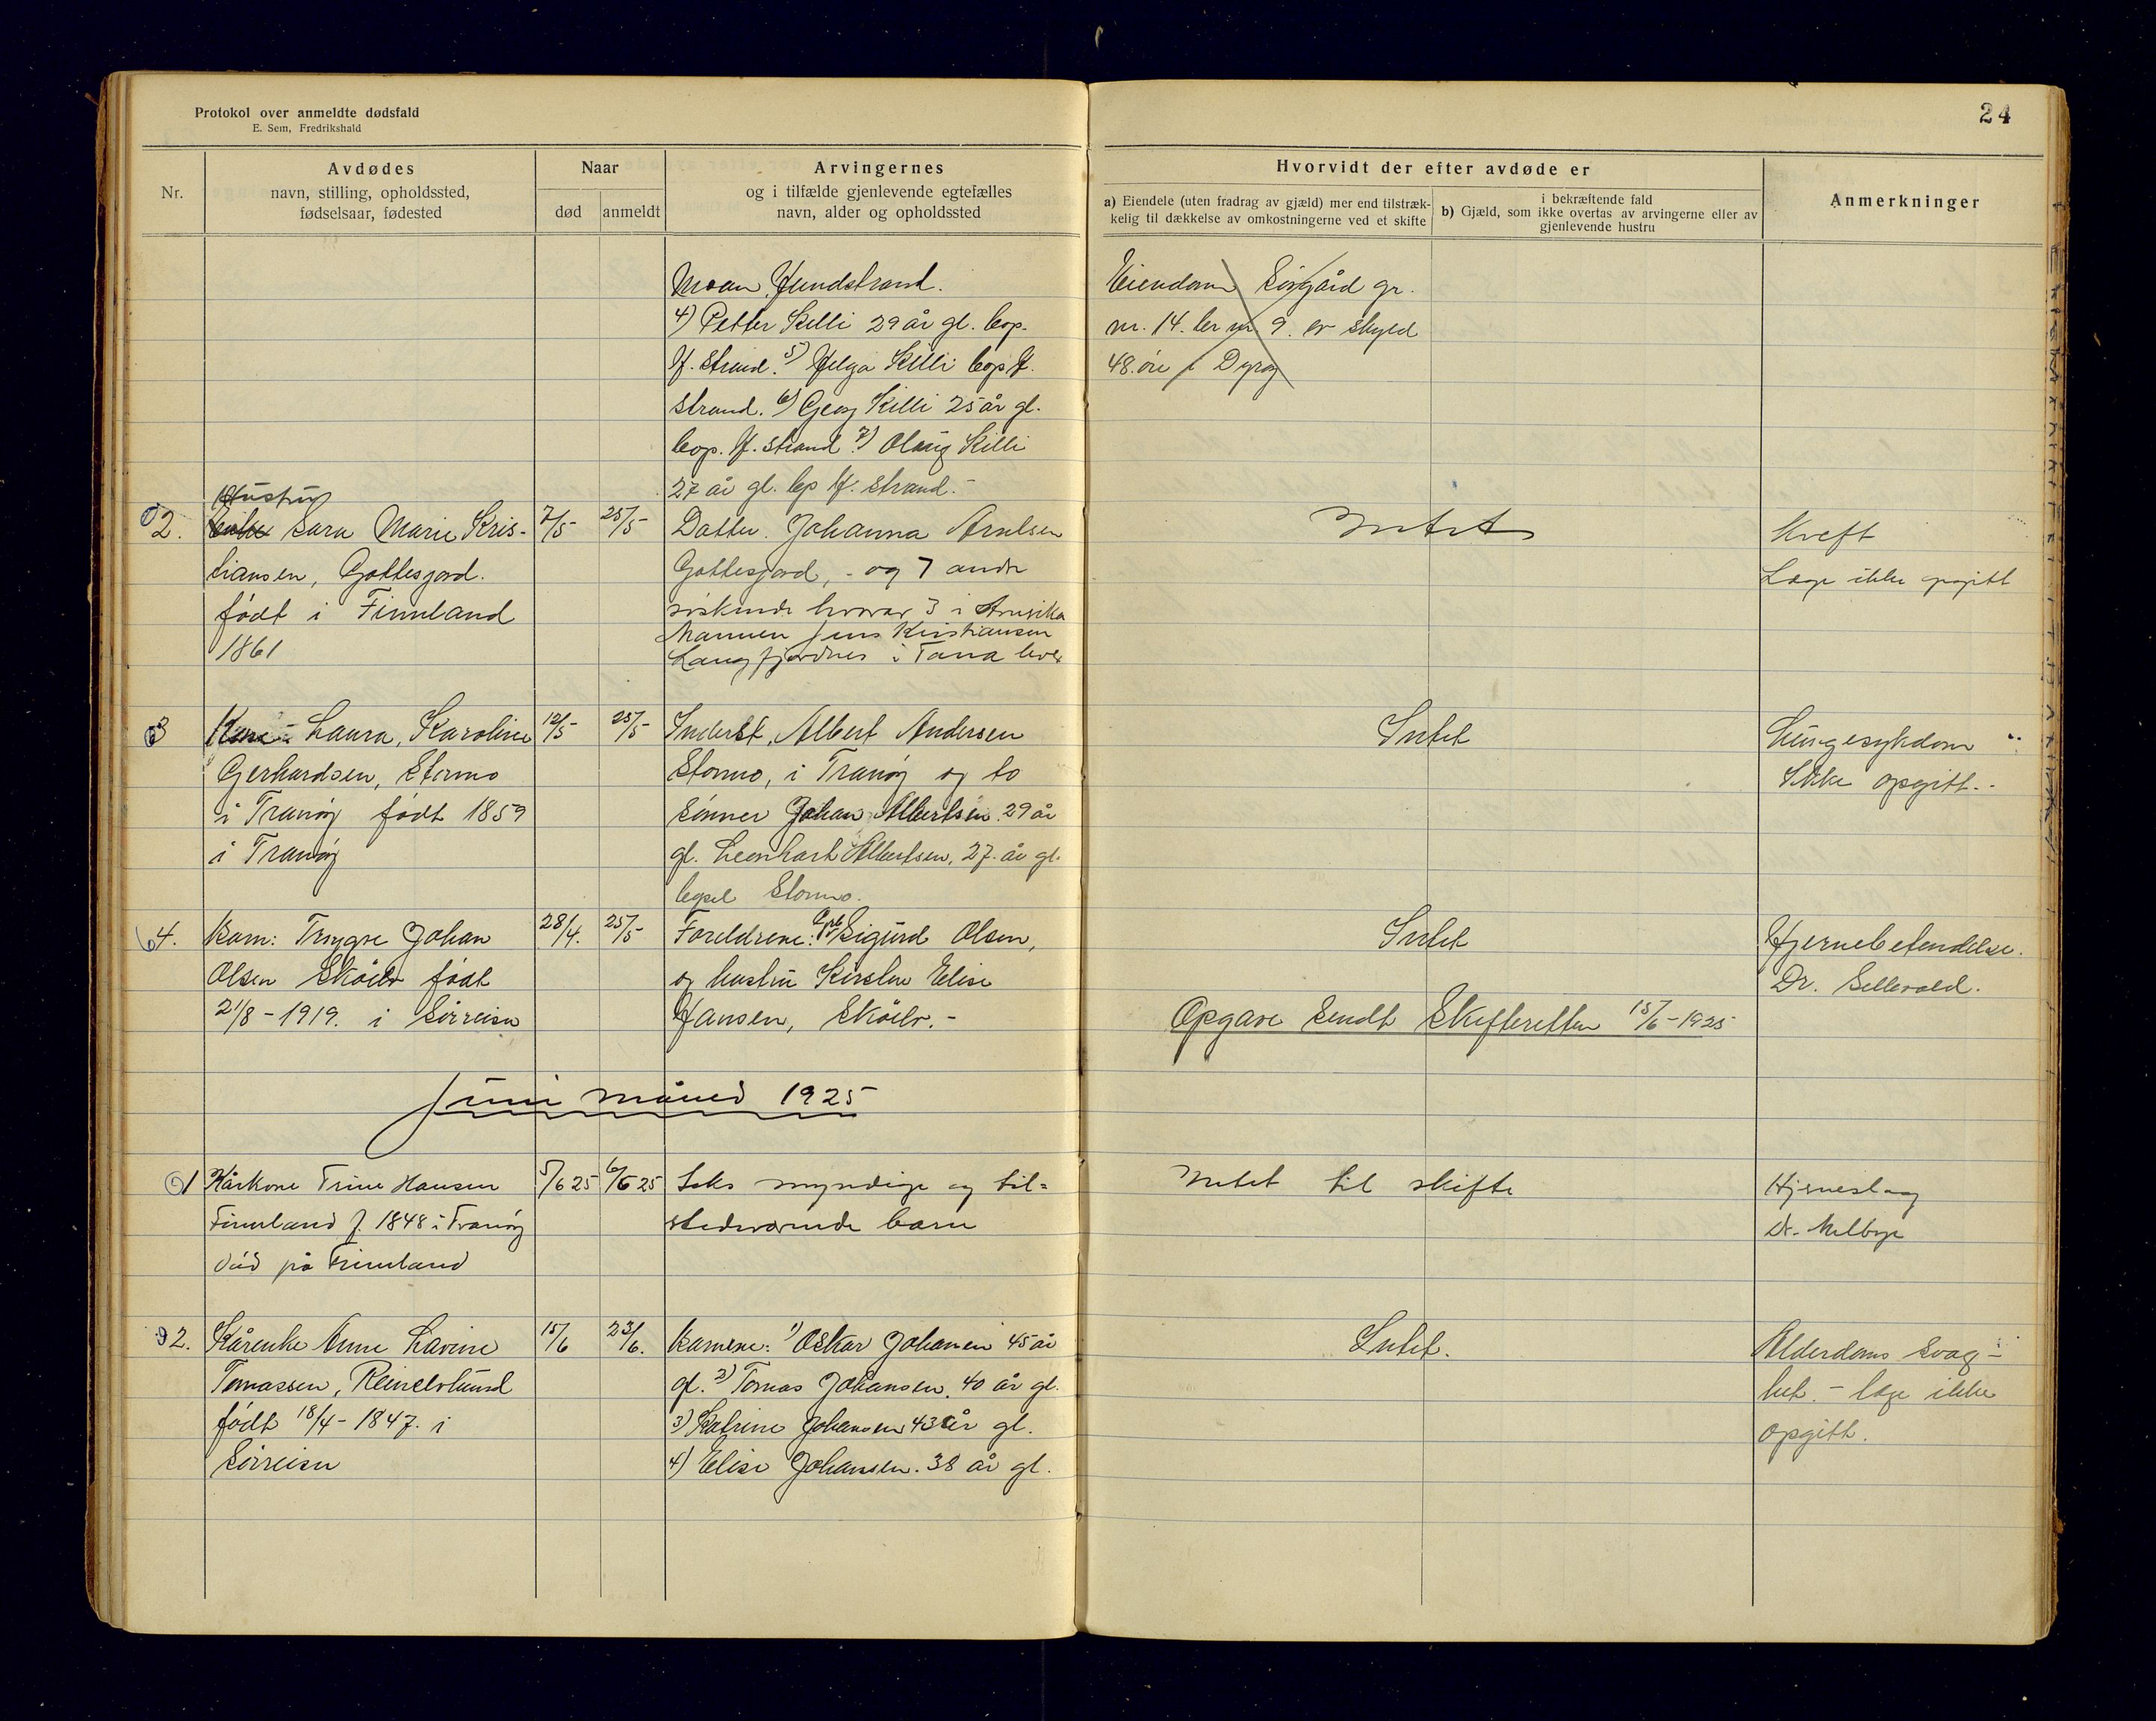 Protokol over anmeldte dødsfald
E. Sem, Fredrikshald
24
Nr.
Avdødes
navn, stilling, opholdssted,
fødselsaar, fødested
Naar
død
anmeldt
Arvingernes
og i tilfælde gjenlevende egtefælles
navn, alder og opholdssted
Hvorvidt der efter avdøde er
a) Eiendele (uten fradrag av gjæld) mer end tilstræk-
kelig til dækkelse av omkostningerne ved et skifte
i bekræftende fald
b) Gjæld, som ikke overtas av arvingerne eller av
gjenlevende hustru
Anmerkninger
Moan, Hundstrand.
4) Petter Killi 29 år gl. bop.
H. strand. 5) Helga Killi bop H.
strand. 6) Georg Killi 25 år gl.
bop. H. strand 7) Olaug Killi
27 år gl. bop H. strand.-
Eiendom Sörgård gr.
nr. 14. br nr. 9. av skyld
48. öre i Dyröy
Hustru
2. Sara Marie Kris-
tiansen, Gottesjord.
født i Finnland
1861
7/5 25/5
Datter. Johanna Arntsen
Gottesjord, - og 7 andre
søskende hvorav 3 i Amerika
Mannen Jens Kristiansen
Langfjordnes i Tana lever
Intet
Kreft
Læge ikke opgitt
3 Kone - Laura, Karoline
Gerhardsen, Stormo
i Tranöy født 1859
i Tranöy
12/5 25/5
Inderst, Albert Andersen
Stormo, i Tranöy og to
sönner Johan Albertsen. 29 år
gl. Leonhart Albertsen, 27. år gl.
bopel Stormo.
Intet
Lungesykdom
Ikke opgitt.-
4. Barn: Trygve Johan
Olsen Sköelv født
21/8-1919. i Sörreisa
28/4. 25/5
Foreldrene: Sigurd Olsen,
og hustru Kirstine Elise
Hansen, Sköelv.-
Intet
Hjernebetendelse.
Dr. Sellevold.
Opgave sendt Skifteretten 15/6-1925
Juni måned 1925
1 Kårkone Trine Hansen
Finnland f. 1848 i Tranöy
död på Finnland
5/6 25 6/6 25
Seks myndige og til-
stedeværende barn
Intet til skifte
Hjerneslag
Dr. Melbye
2. Kårenke Anne Lavine
Tomassen, Reinelvlund
født 18/4-1847. i
Sörreisa
15/6 23/6.
Barnene: 1) Oskar Johansen 45 år
gl. 2) Tomas Johansen. 40 år gl.
3) Katrine Johansen 43 år gl.
4) Elise Johansen. 38 år gl.
Intet.
Alderdoms svag-
het. - læge ikke
opgitt.